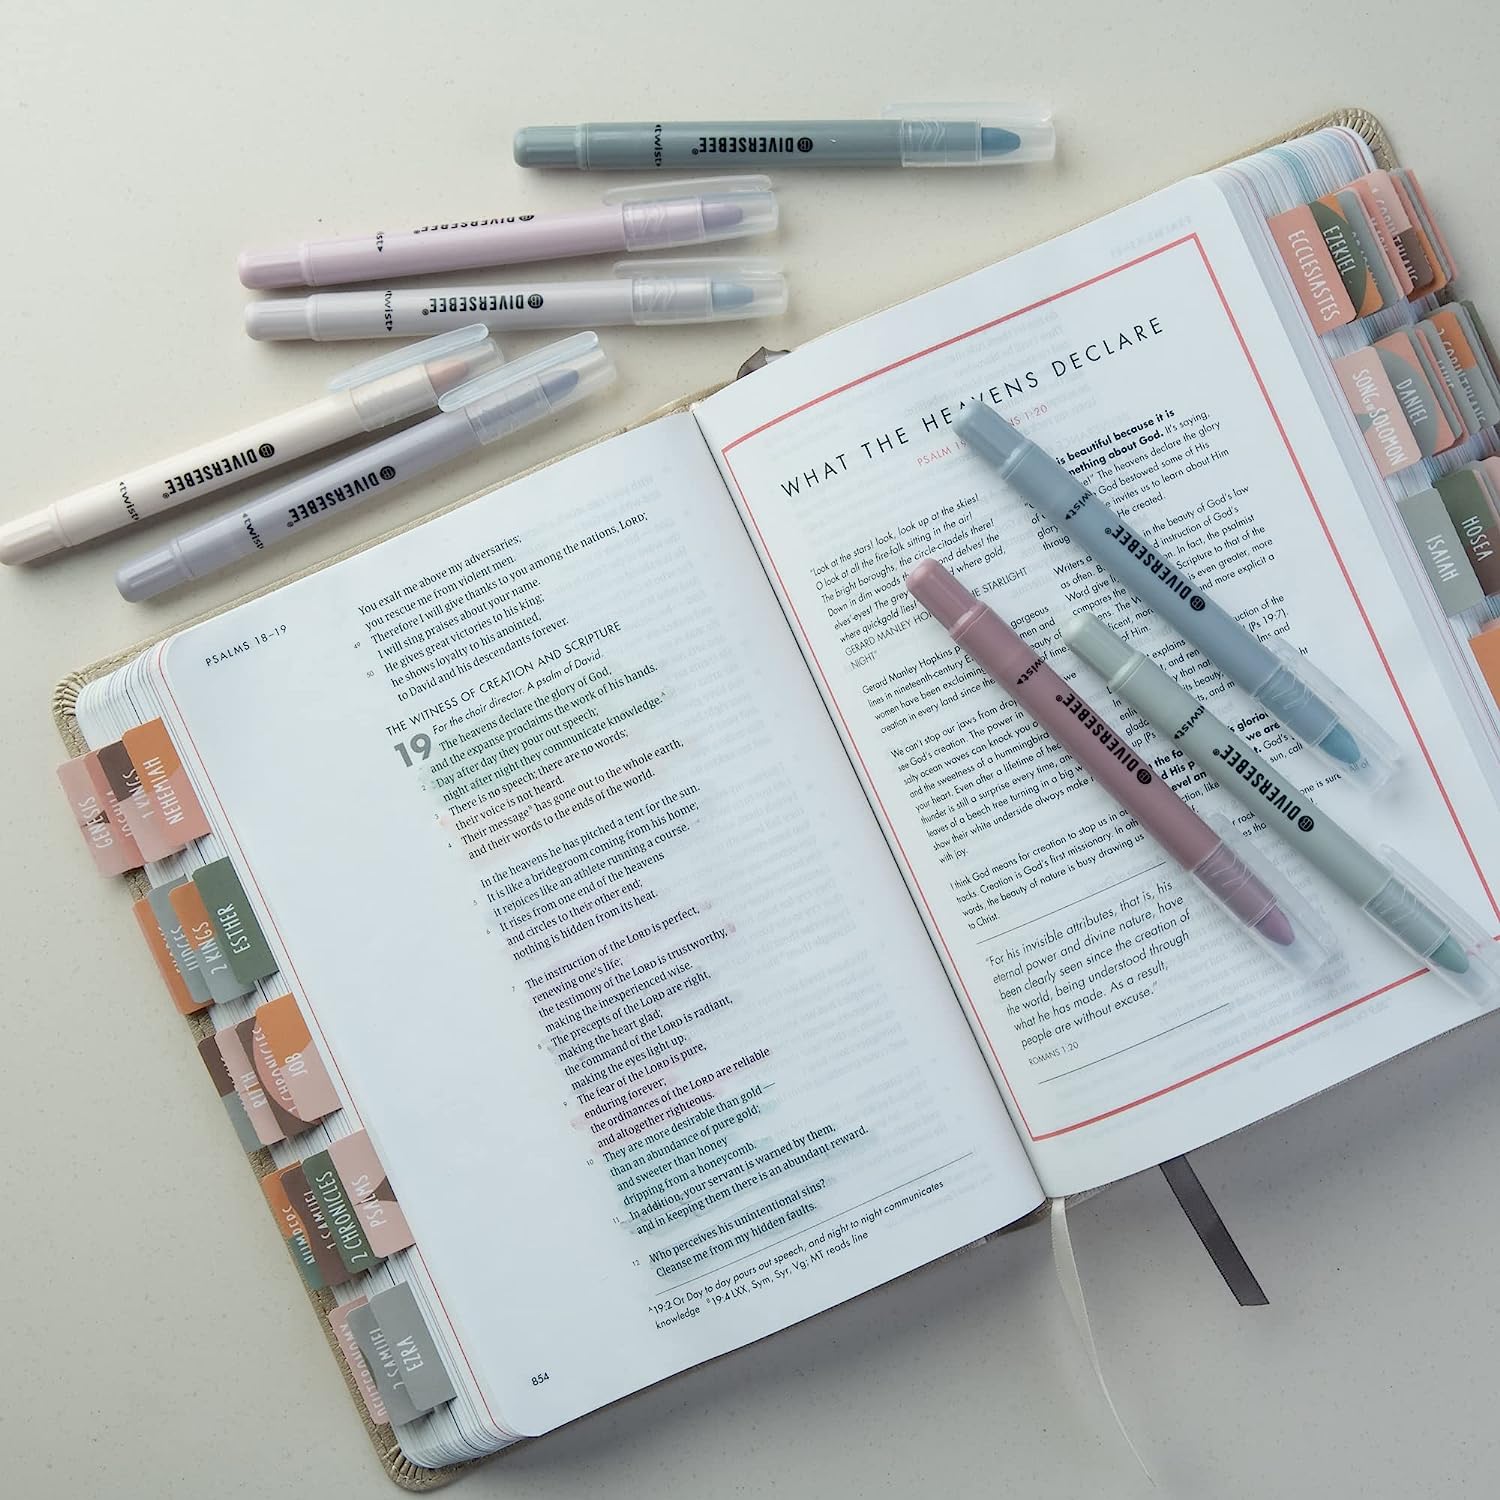 DIVERSEBEE®
twist
DIVERSEBEE®
DIVERSEBEE®
twist
DIVERSEBEE®
twist
DIVERSEBEE®
twist
PSALMS 18–19
You exalt me above my adversaries;
you rescue me from violent men.
49 Therefore I will give thanks to you among the nations, LORD;
I will sing praises about your name.
50 He gives great victories to his king;
he shows loyalty to his anointed,
to David and his descendants forever.
THE WITNESS OF CREATION AND SCRIPTURE
For the choir director. A psalm of David.
19 The heavens declare the glory of God,
and the expanse proclaims the work of his hands.
2 Day after day they pour out speech;
night after night they communicate knowledge.A
3 There is no speech; there are no words;
their voice is not heard.
4 Their messageB has gone out to the whole earth,
and their words to the ends of the world.
In the heavens he has pitched a tent for the sun.
5 It is like a bridegroom coming from his home;
it rejoices like an athlete running a course.
6 It rises from one end of the heavens
and circles to their other end;
nothing is hidden from its heat.
7 The instruction of the LORD is perfect,
renewing one's life;
the testimony of the LORD is trustworthy,
making the inexperienced wise.
8 The precepts of the LORD are right,
making the heart glad;
the command of the LORD is radiant,
making the eyes light up.
9 The fear of the LORD is pure,
enduring forever;
the ordinances of the LORD are reliable
and altogether righteous.
10 They are more desirable than gold—
than an abundance of pure gold;
and sweeter than honey
dripping from a honeycomb.
11 In addition, your servant is warned by them,
and in keeping them there is an abundant reward.
12 Who perceives his unintentional sins?
Cleanse me from my hidden faults.
A 19:2 Or Day to day pours out speech, and night to night communicates
knowledge B 19:4 LXX, Sym, Syr, Vg; MT reads line
854
WHAT THE HEAVENS DECLARE
PSALM 19
NS 1:20
"Look at the stars! look, look up at the skies!
O look at all the fire-folk sitting in the air!
The bright boroughs, the circle-citadels there!
Down in dim woods the
nd delves! the
elves'-eyes! The grey
d where gold,
where quickgold lies!
GERARD MANLEY HO
HE STARLIGHT
NIGHT"
Gerard Manley Hopkins p
lines in nineteenth-century E
women have been exclaiming
creation in every land since the
We can't stop our jaws from drop
see God's creation. The power in
salty ocean waves can knock you o
and the sweetness of a hummingbird
your heart. Even after a lifetime of hea
thunder is still a surprise every time, and
leaves of a beech tree turning in a big w
show their white underside always make
with joy.
I think God means for creation to stop us in o
tracks. Creation is God's first missionary. In oth
words, the beauty of nature is busy drawing us
to Christ.
"For his invisible attributes, that is, his
eternal power and divine nature, have
been clearly seen since the creation of
the world, being understood through
what he has made. As a result,
people are without excuse."
ROMANS 1:20
is beautiful because it is
mething about God. It's saying,
e!" The heavens declare the glory
God bestowed some of His
e invites us to learn about Him
He created.
in the beauty of God's law
nd instruction of God's
In fact, the psalmist
Scripture to that of the
is even greater, more
nd more explicit a
DIVERSEBEE®
twist
DIVERSEBEE®
twist
DIVERSEBEE®
twist
GENESIS
1 KINGS
NEHEMIAH
JUDGES
2 KINGS
ESTHER
RUTH
1 CHRONICLES
JOB
NUMBERS
1 SAMUEL
2 CHRONICLES
PSALMS
DEUTERONOMY
2 SAMUEL
EZRA
ECCLESIASTES
EZEKIEL
SONG OF SOLOMON
DANIEL
ISAIAH
HOSEA